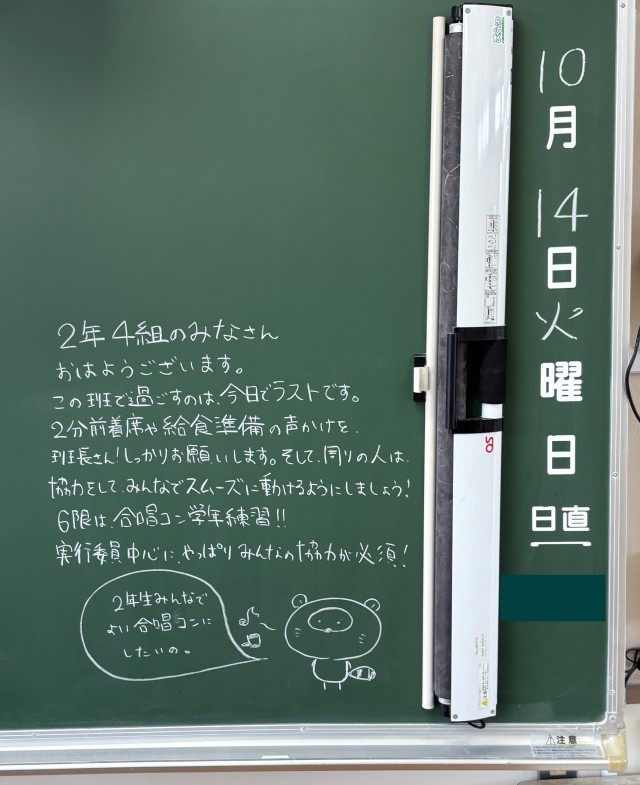 10
月
14
日
火
曜
日
日直
2年4組のみなさん
おはようございます。
この班で過ごすのは、今日でラストです。
2分前着席や給食準備の声かけを、
班長さん!しっかりお願いします。そして、周りの人は、
協力をして、みんなでスムーズに動けるようにしましょう!
6限は、合唱コン学年練習!!
実行委員中心に、やっぱりみんなの協力が必須!
2年生みんなで
よい合唱コンに
したいの。
注意